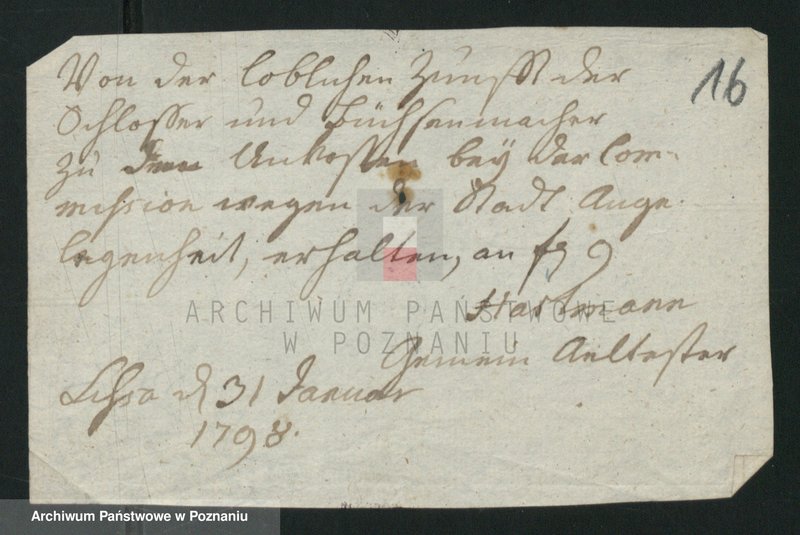 Von der loblichen Zunfft der
Schlosser und Büchsenmacher
zu den Unkosten bey der Com-
mission wegen der Stadt Ange-
legenheit, erhalten, an f 9
Hartmann
Gemein Aeltester
Lissa d 31 Januar
1798.
16
ARCHIWUM PAŃSTWOWE
W POZNANIU
Archiwum Państwowe w Poznaniu